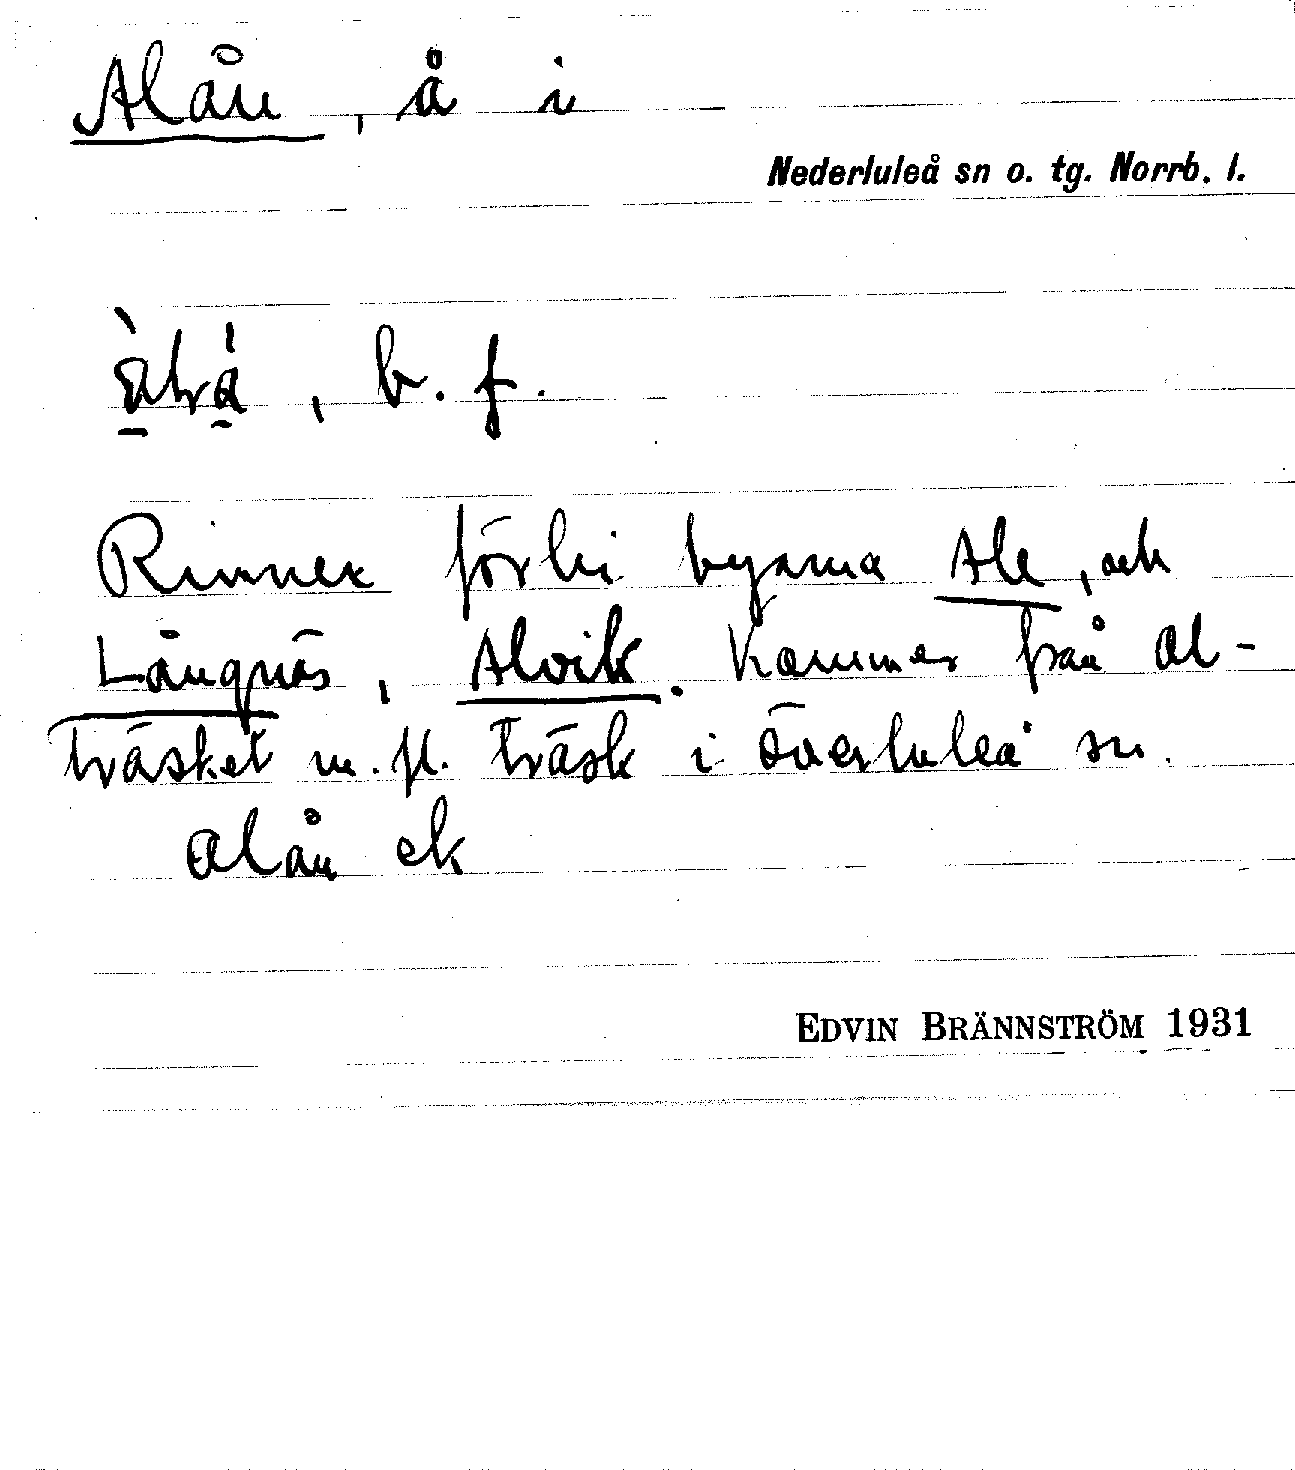 Alån, å i
Nederluleå sn o. tg. Norrb. l.
, b. f.
Rinner förbi byarna Ale, och
Långnäs, Alvik. Kommer från Al-
träsket m. fl. träsk i Överluleå sn.
Alån ek
EDVIN BRÄNNSTRÖM 1931